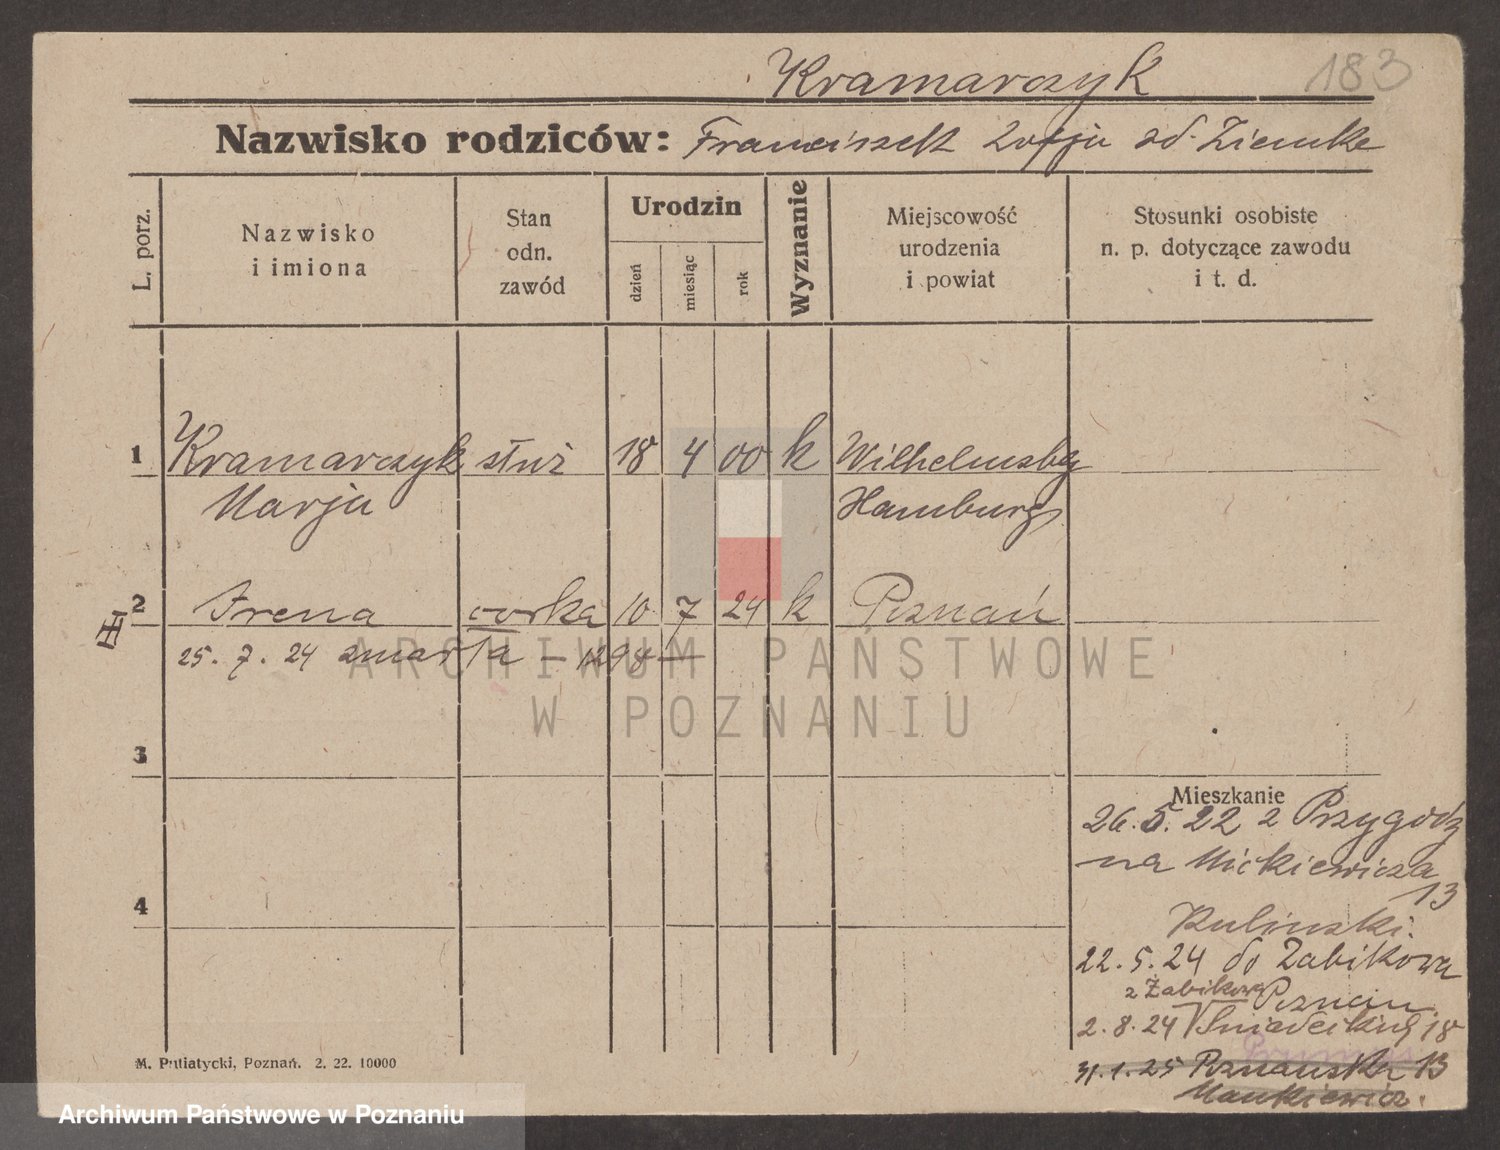 Kramarczyk 183
Nazwisko rodziców: Franciszek Zofja zd. Ziemke
L. porz.
Nazwisko
i imiona
Stan
odn.
zawód
Urodzin
dzień
miesiąc
rok
Wyznanie
Miejscowość
urodzenia
i powiat
Stosunki osobiste
n. p. dotyczące zawodu
i t. d.
1 Kramarczyk służ 18 4 00 k Wilhelmsbg
Marja Hamburg
2 Irena córka 10 7 24 k Poznań
25. 7. 24 zmarła — 1298 —
3
4
Mieszkanie
26. 5. 22 z Przygodz
na Mickiewicza
13
Kulinski.
22. 5. 24 do Zabikowa
z Żabikowa Poznań
2. 8. 24 Śniadeckich 18
31. 1. 25 Poznańska 13
Mankiewicz.
M. Putiatycki, Poznań. 2. 22. 10000
ARCHIWUM PAŃSTWOWE
W POZNANIU
Archiwum Państwowe w Poznaniu